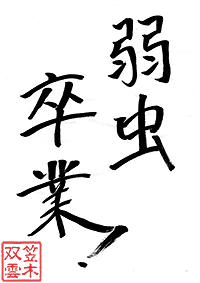 弱虫
卒業！
笠木
双雲